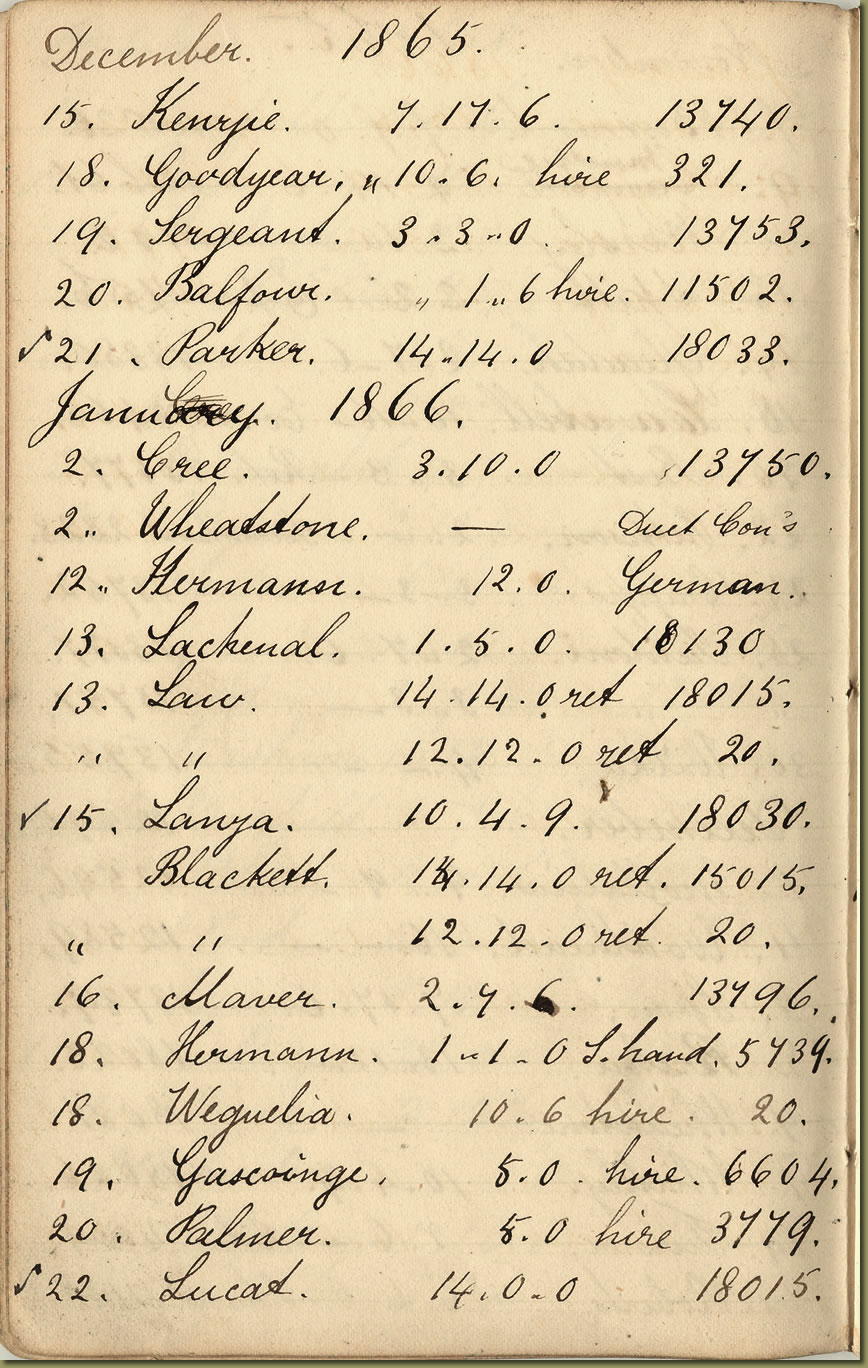 December. 1865.
15. Kenzie. 7.17.6. 13740.
18. Goodyear. " 10.6. hire 321.
19. Sergeant. 3.3.0. 13753.
20. Balfour. " 1.6 hire. 11502.
✓ 21. Parker. 14.14.0 18033.
January. 1866.
2. Cree. 3.10.0 13750.
2. Wheatstone. — Duet Con's
12. Hermann. 12.0. German.
13. Lachenal. 1.5.0. 18130
13. Law. 14.14.0 ret 18015.
" " 12.12.0 ret 20.
✓ 15. Lanza. 10.4.9. 18030.
Blackett. 14.14.0 ret. 15015.
" " 12.12.0 ret. 20.
16. Maver. 2.7.6. 13796.
18. Hermann. 1.1.0 S.hand. 5739.
18. Weguelia. 10.6 hire. 20.
19. Gascoinge. 5.0. hire. 6604.
20. Palmer. 5.0 hire 3779.
✓ 22. Lucat. 14.0.0 18015.